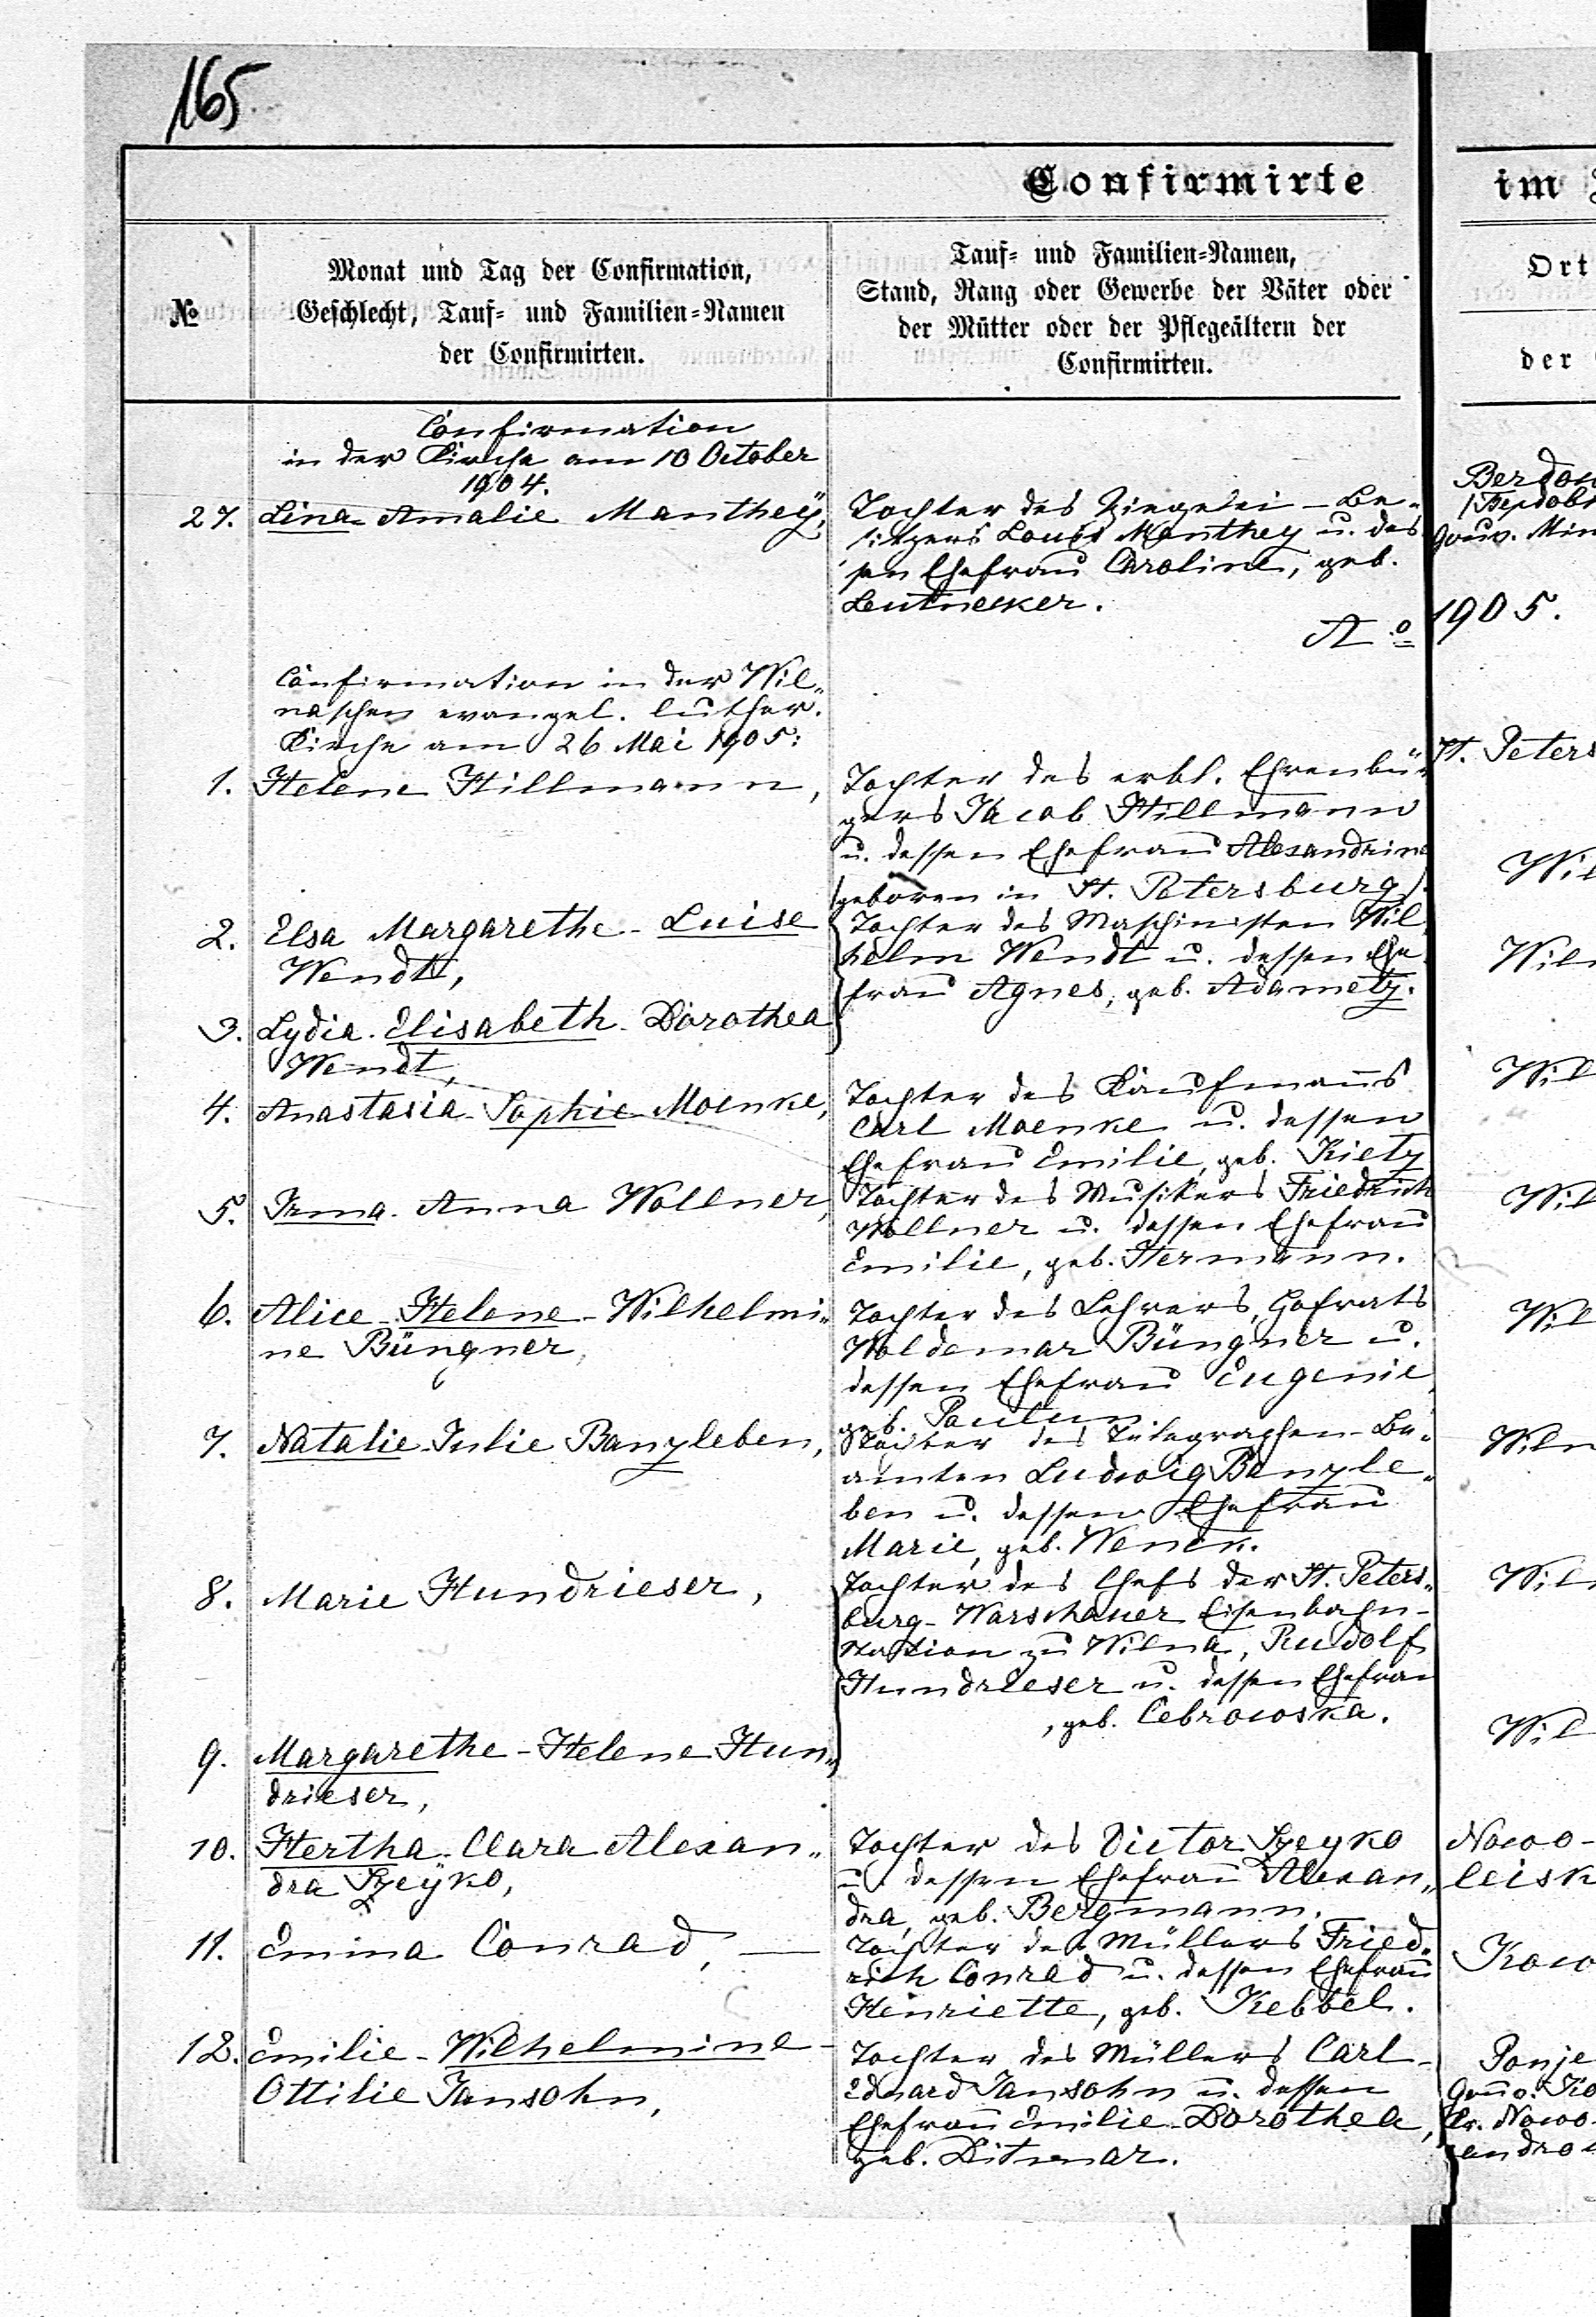 165
Confirmirte
im
№
Monat und Tag der Confirmation,
Geschlecht, Tauf- und Familien-Namen
der Confirmirten.
Tauf- und Familien-Namen,
Stand, Rang oder Gewerbe der Väter oder
der Mütter oder der Pflegeältern der
Confirmirten.
Ort
der
Confirmation
in der Kirche am 10 October
1904.
27. Lina-Amalie Manthey,
Tochter des Ziegelei-Be-
sitzers Louis Manthey u. des
sen Ehefrau Caroline, geb.
Leutnecker.
Gouv. Min
Ao 1905.
Confirmation in der Wil-
naschen evangel. luther.
Kirche am 26 Mai 1905:
1. Helene Hillmann,
Tochter des erbl. Ehrenbür-
gers Jacob Hillmann
u. dessen Ehefrau Alexandrine
(geboren in St. Petersburg).
St. Peters
Wil
2. Elsa Margarethe-Luise
Wendt,
Tochter des Maschinisten Wil-
helm Wendt u. dessen Ehe-
frau Agnes, geb. Adametz.
Wiln
3. Lydia-Elisabeth-Dorothea
Wendt,
Wil
4. Anastasia-Sophie Moenke,
Tochter des Kaufmanns
Carl Moenke u. dessen
Ehefrau Emilie, geb. Kietz
5. Irma-Anna Wollner,
Tochter des Musikers Friedrich
Wollner u. dessen Ehefrau
Emilie, geb. Hermann.
Wil
6. Alice-Helene-Wilhelmi-
ne Büngner,
Tochter des Lehrers, Hofrats
Woldemar Büngner u.
dessen Ehefrau Eugenie,
geb. Paulun
Wil
7. Natalie-Julie Banzleben,
Tochter des Telegraphen-Be-
amten Ludwig Banzle-
ben u. dessen Ehefrau
Marie, geb. Wenck.
Wiln
8. Marie Hundrieser,
Tochter des Chefs der St. Peters-
burg-Warschauer Eisenbahn-
station zu Wilna, Rudolf
Hundrieser u. dessen Ehefrau
, geb. Cebrowska.
Wiln
9. Margarethe-Helene Hun-
drieser,
Wil
10. Hertha-Clara Alexan-
dra Szeyko,
Tochter des Victor Szeyko
u. dessen Ehefrau Alexan-
dra, geb. Bergmann.
Nowo-
leisk
11. Emma Conrad,
Tochter des Müllers Fried-
rich Conrad u. dessen Ehefrau
Henriette, geb. Kebbel.
Kow
12. Emilie-Wilhelmine-
Ottilie Jansohn,
Tochter des Müllers Carl-
Eduard Jansohn u. dessen
Ehefrau Emilie-Dorothea,
geb. Ditmar.
Ponje
Gouv. Ko
Kr. Nowo-